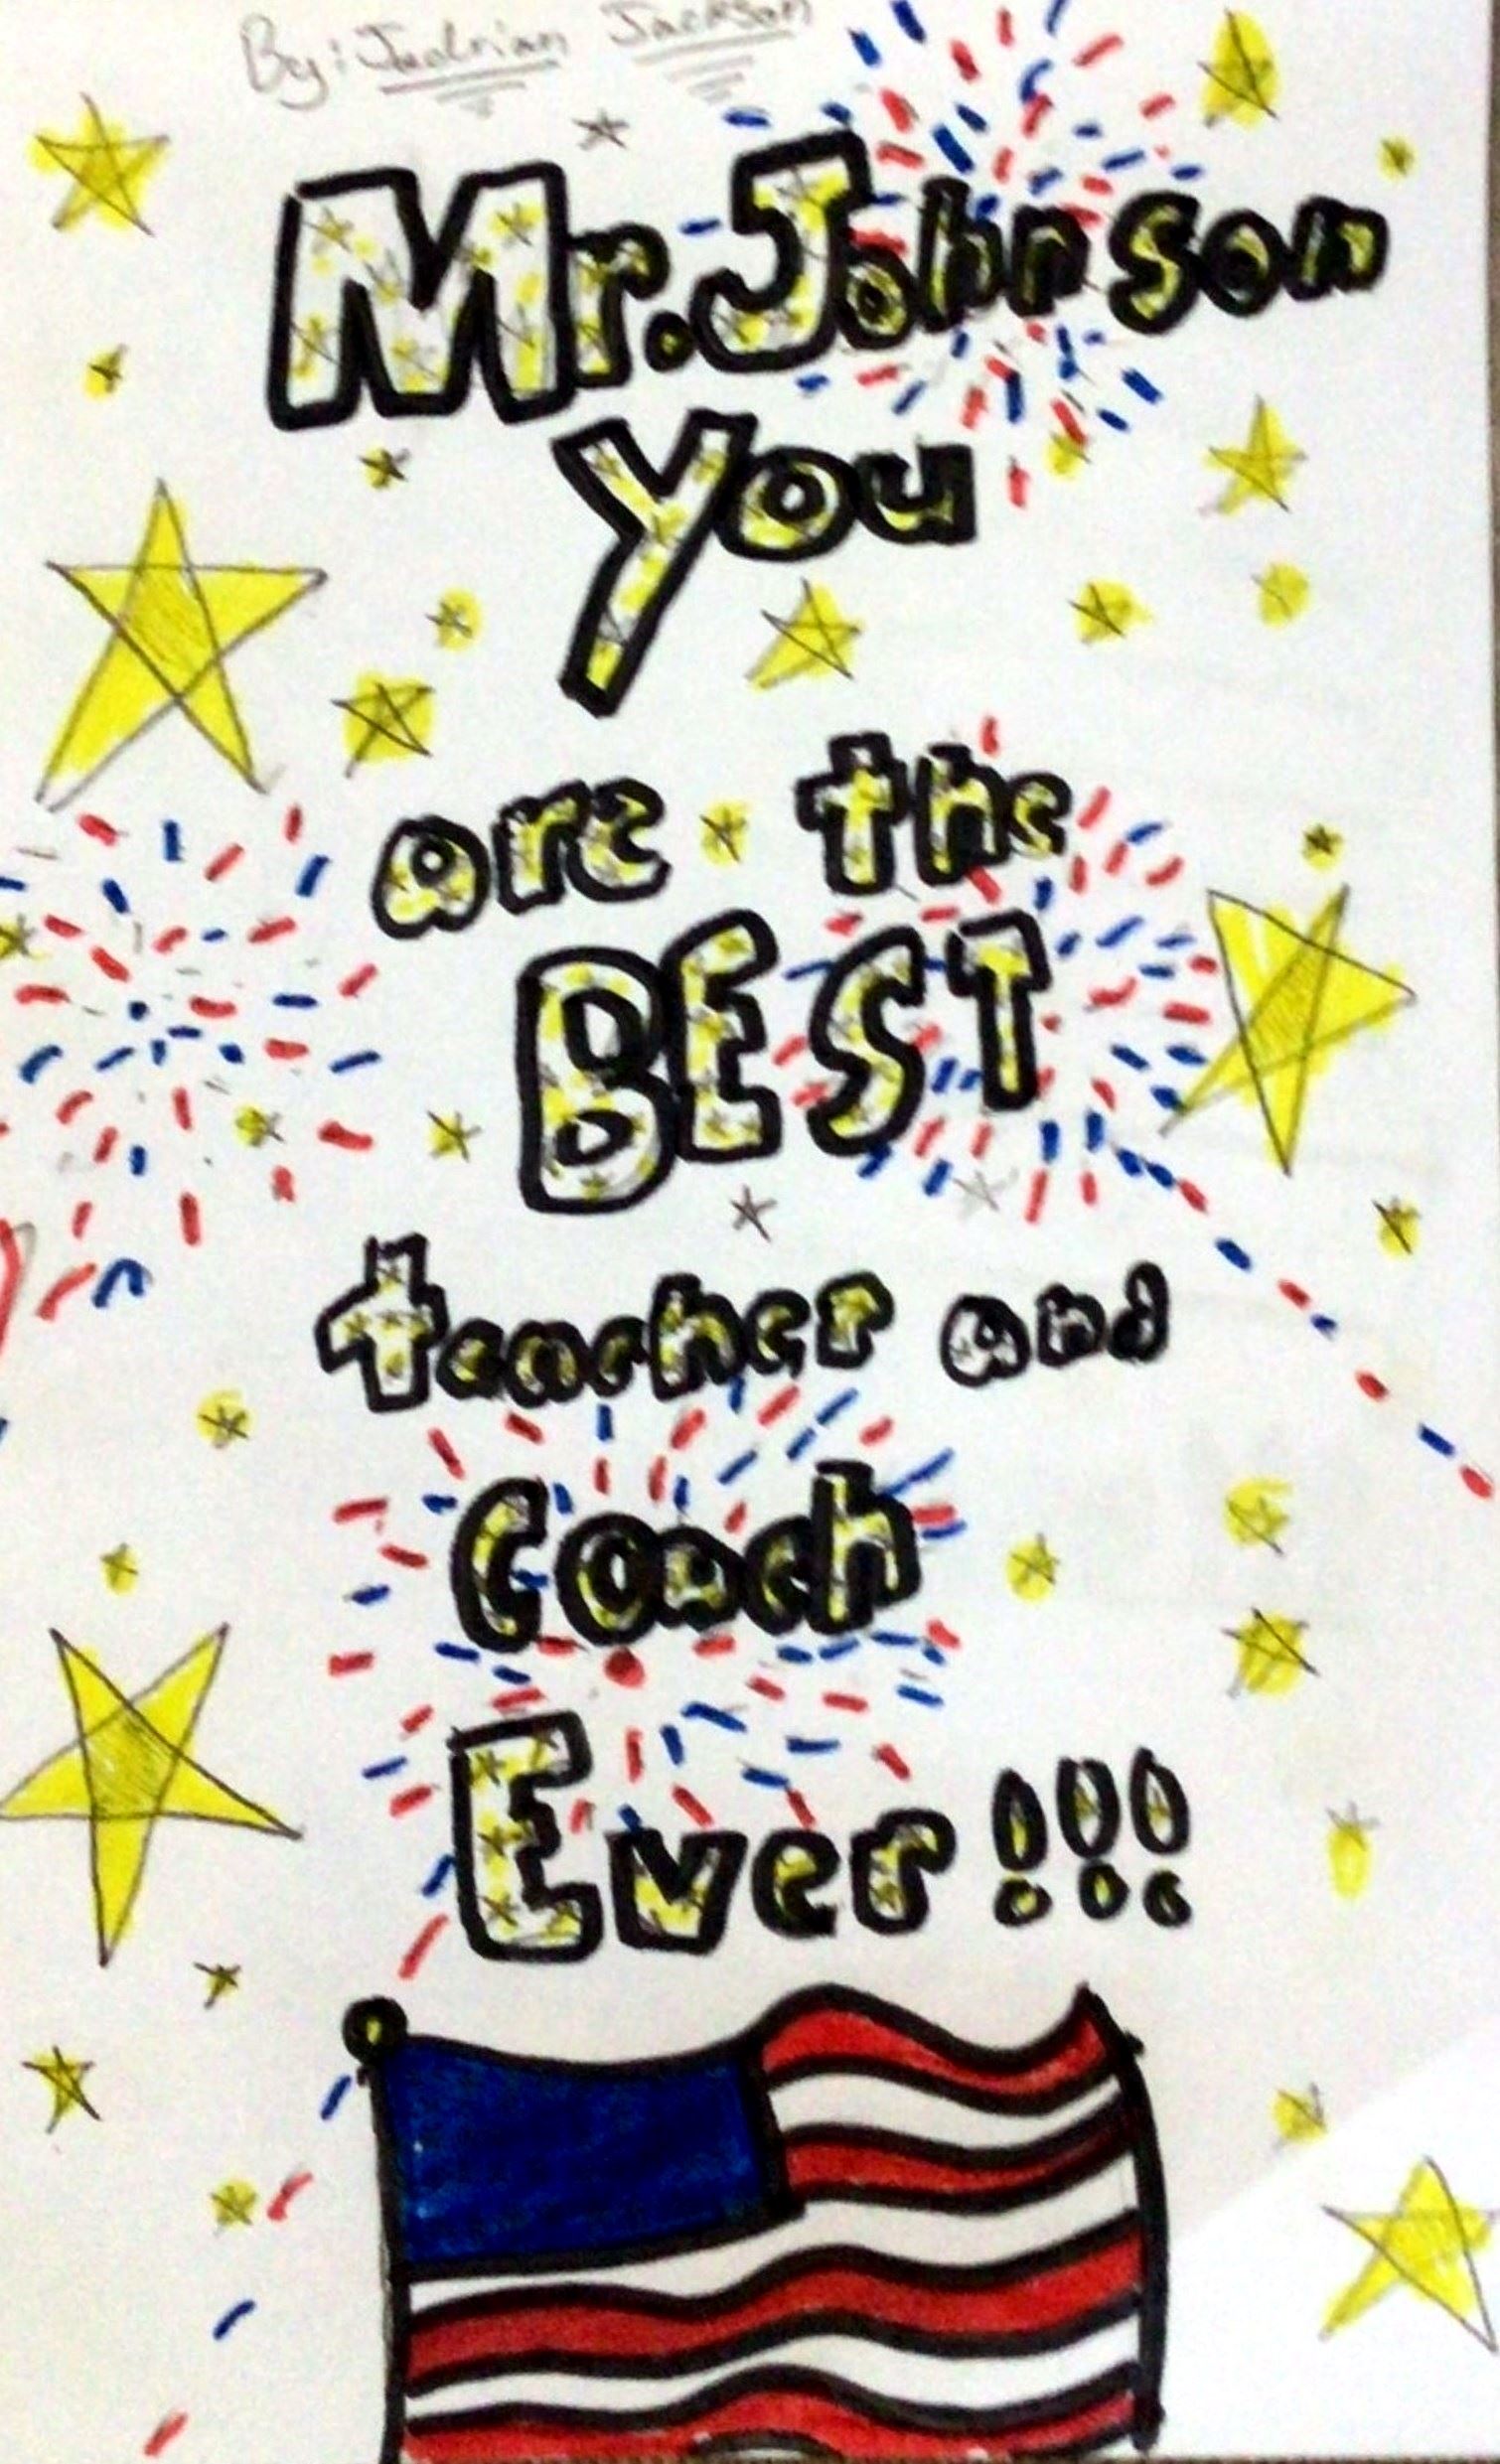 By: Jadrian Jackson
Mr. Johnson
you
are the
BEST
teacher and
Coach
Ever!!!